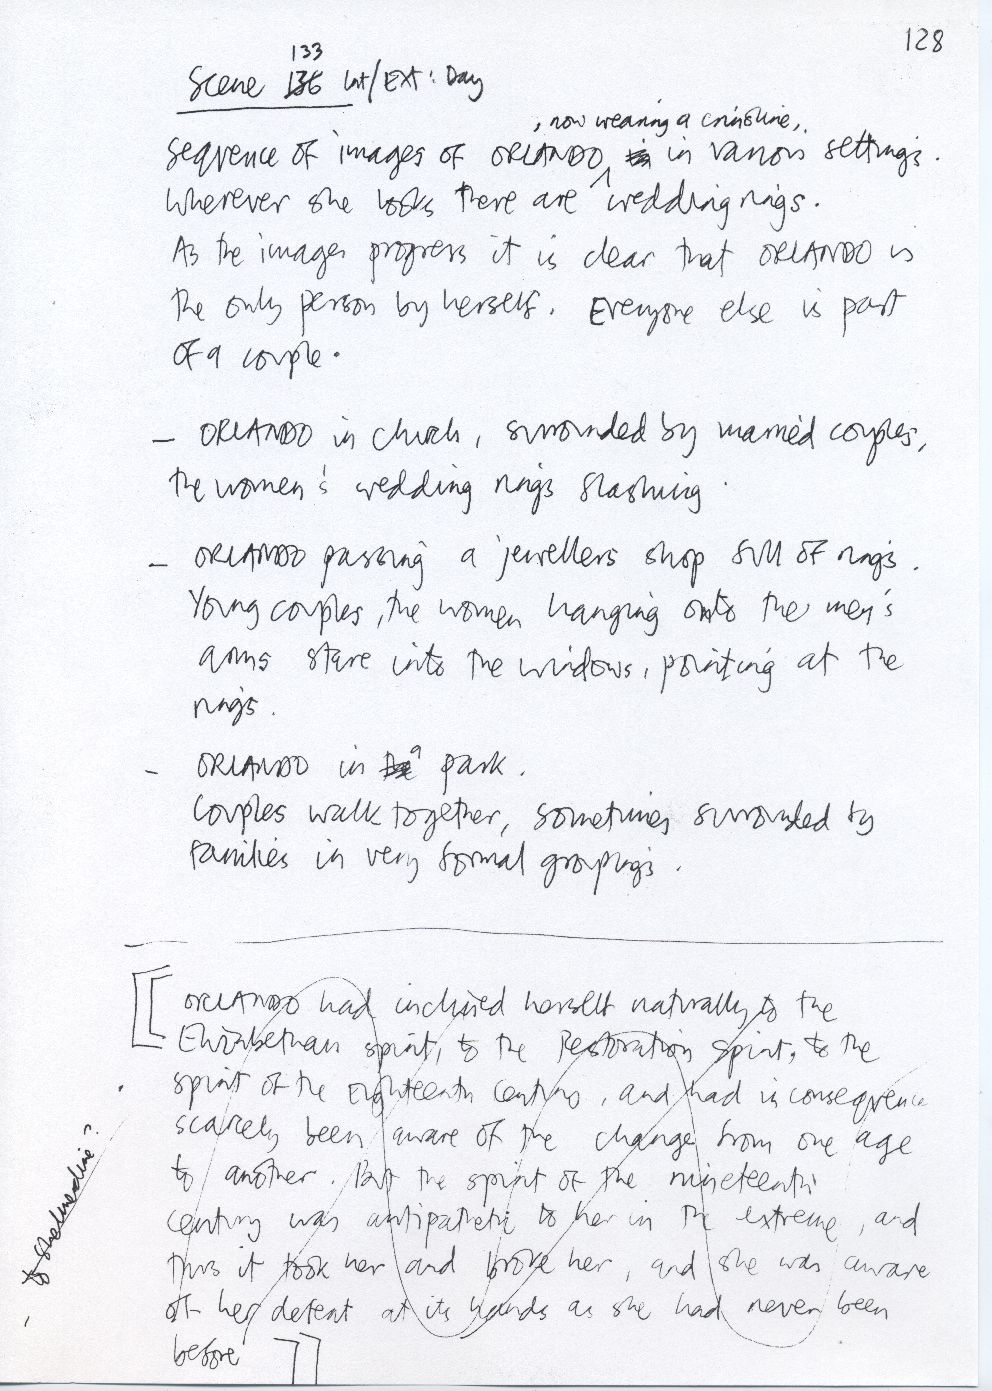 128
133
Scene 136 Int/EXT: Day
, now wearing a crinoline,
Sequence of images of ORLANDO, in various settings.
Wherever she looks there are wedding rings.
As the images progress it is clear that ORLANDO is
the only person by herself. Everyone else is part
of a couple.
- ORLANDO in church, surrounded by married couples,
the women's wedding rings flashing.
- ORLANDO passing a jewellers shop full of rings.
Young couples, the women hanging onto the men's
arms stare into the windows, pointing at the
rings.
- ORLANDO in a park.
Couples walk together, sometimes surrounded by
families in very formal groupings.
[[ORLANDO had inclined herself naturally to the
Elizabethan spirit, to the Restoration spirit, to the
spirit of the Eighteenth century, and had in consequence
scarcely been aware of the change from one age
to another. But the spirit of the nineteenth
century was antipathetic to her in the extreme, and
thus it took her and broke her, and she was aware
of her defeat at its hands as she had never been
before]]
to Shelmerdine?